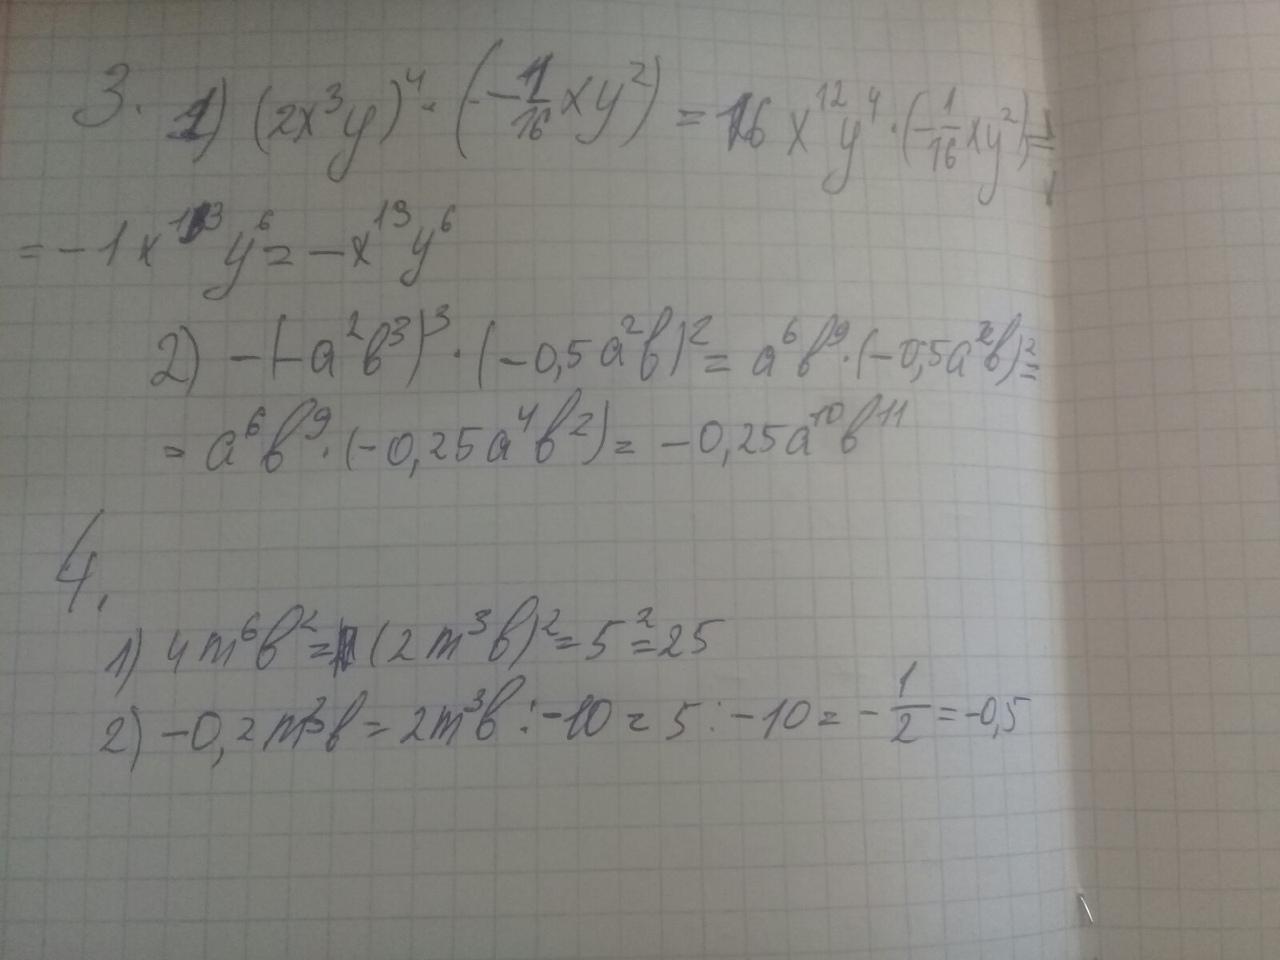 3. 1) (2x³y)⁴ · (-1/16 xy²) = 16x¹²y⁴ · (-1/16 xy²) =
= -1x¹³y⁶ = -x¹³y⁶
2) -(-a²b³)³ · (-0,5a²b)² = a⁶b⁹ · (-0,5a²b)² =
= a⁶b⁹ · (-0,25a⁴b²) = -0,25a¹⁰b¹¹
4.
1) 4m⁶b² = (2m³b)² = 5² = 25
2) -0,2m³b = 2m³b : -10 = 5 : -10 = -1/2 = -0,5